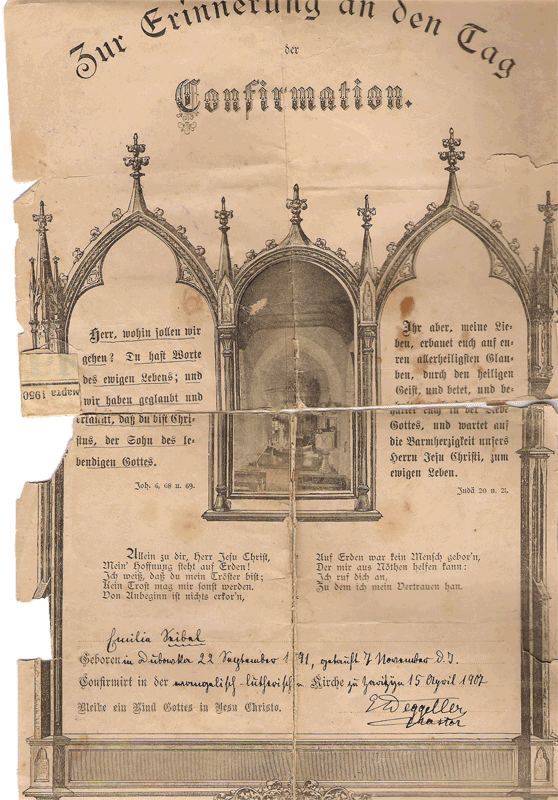 Zur Erinnerung an den Tag
der
Confirmation.
Herr, wohin sollen wir
gehen? Du hast Worte
des ewigen Lebens; und
wir haben geglaubt und
erkannt, daß du bist Chri-
stus, der Sohn des le-
bendigen Gottes.
Joh. 6, 68 u. 69.
Марта 1950
Ihr aber, meine Lie-
ben, erbauet euch auf eu-
ren allerheiligsten Glau-
ben, durch den heiligen
Geist, und betet, und be-
haltet euch in der Liebe
Gottes, und wartet auf
die Barmherzigkeit unsers
Herrn Jesu Christi, zum
ewigen Leben.
Judä 20 u. 21.
Allein zu dir, Herr Jesu Christ,
Mein' Hoffnung steht auf Erden!
Ich weiß, daß du mein Tröster bist;
Kein Trost mag mir sonst werden.
Von Anbeginn ist nichts erkor'n,
Auf Erden war kein Mensch gebor'n,
Der mir aus Nöthen helfen kann:
Ich ruf dich an,
Zu dem ich mein Vertrauen han.
Emilia Seibel
Geboren in Dubowka 22 September 1 91, getauft 7 November d. J.
Confirmirt in der evangelisch-lutherisch Kirche zu 15 April 1907
Bleibe ein Kind Gottes in Jesu Christo.
Pastor